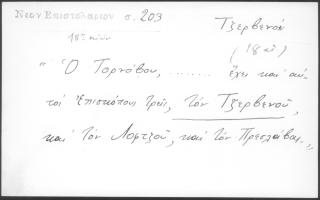 Νεον Επιστολαριον σ. 203
Τζερβενού
18ος αιών
(18 αἰ)
" Ὁ Τορνόβου, ........ ἔχει καὶ αὐ-
τοὶ ἐπισκόπους τρεῖς, τὸν Τζερβενοῦ,
καὶ τὸν Λοφτζοῦ, καὶ τὸν Πρεσλάβας.,,